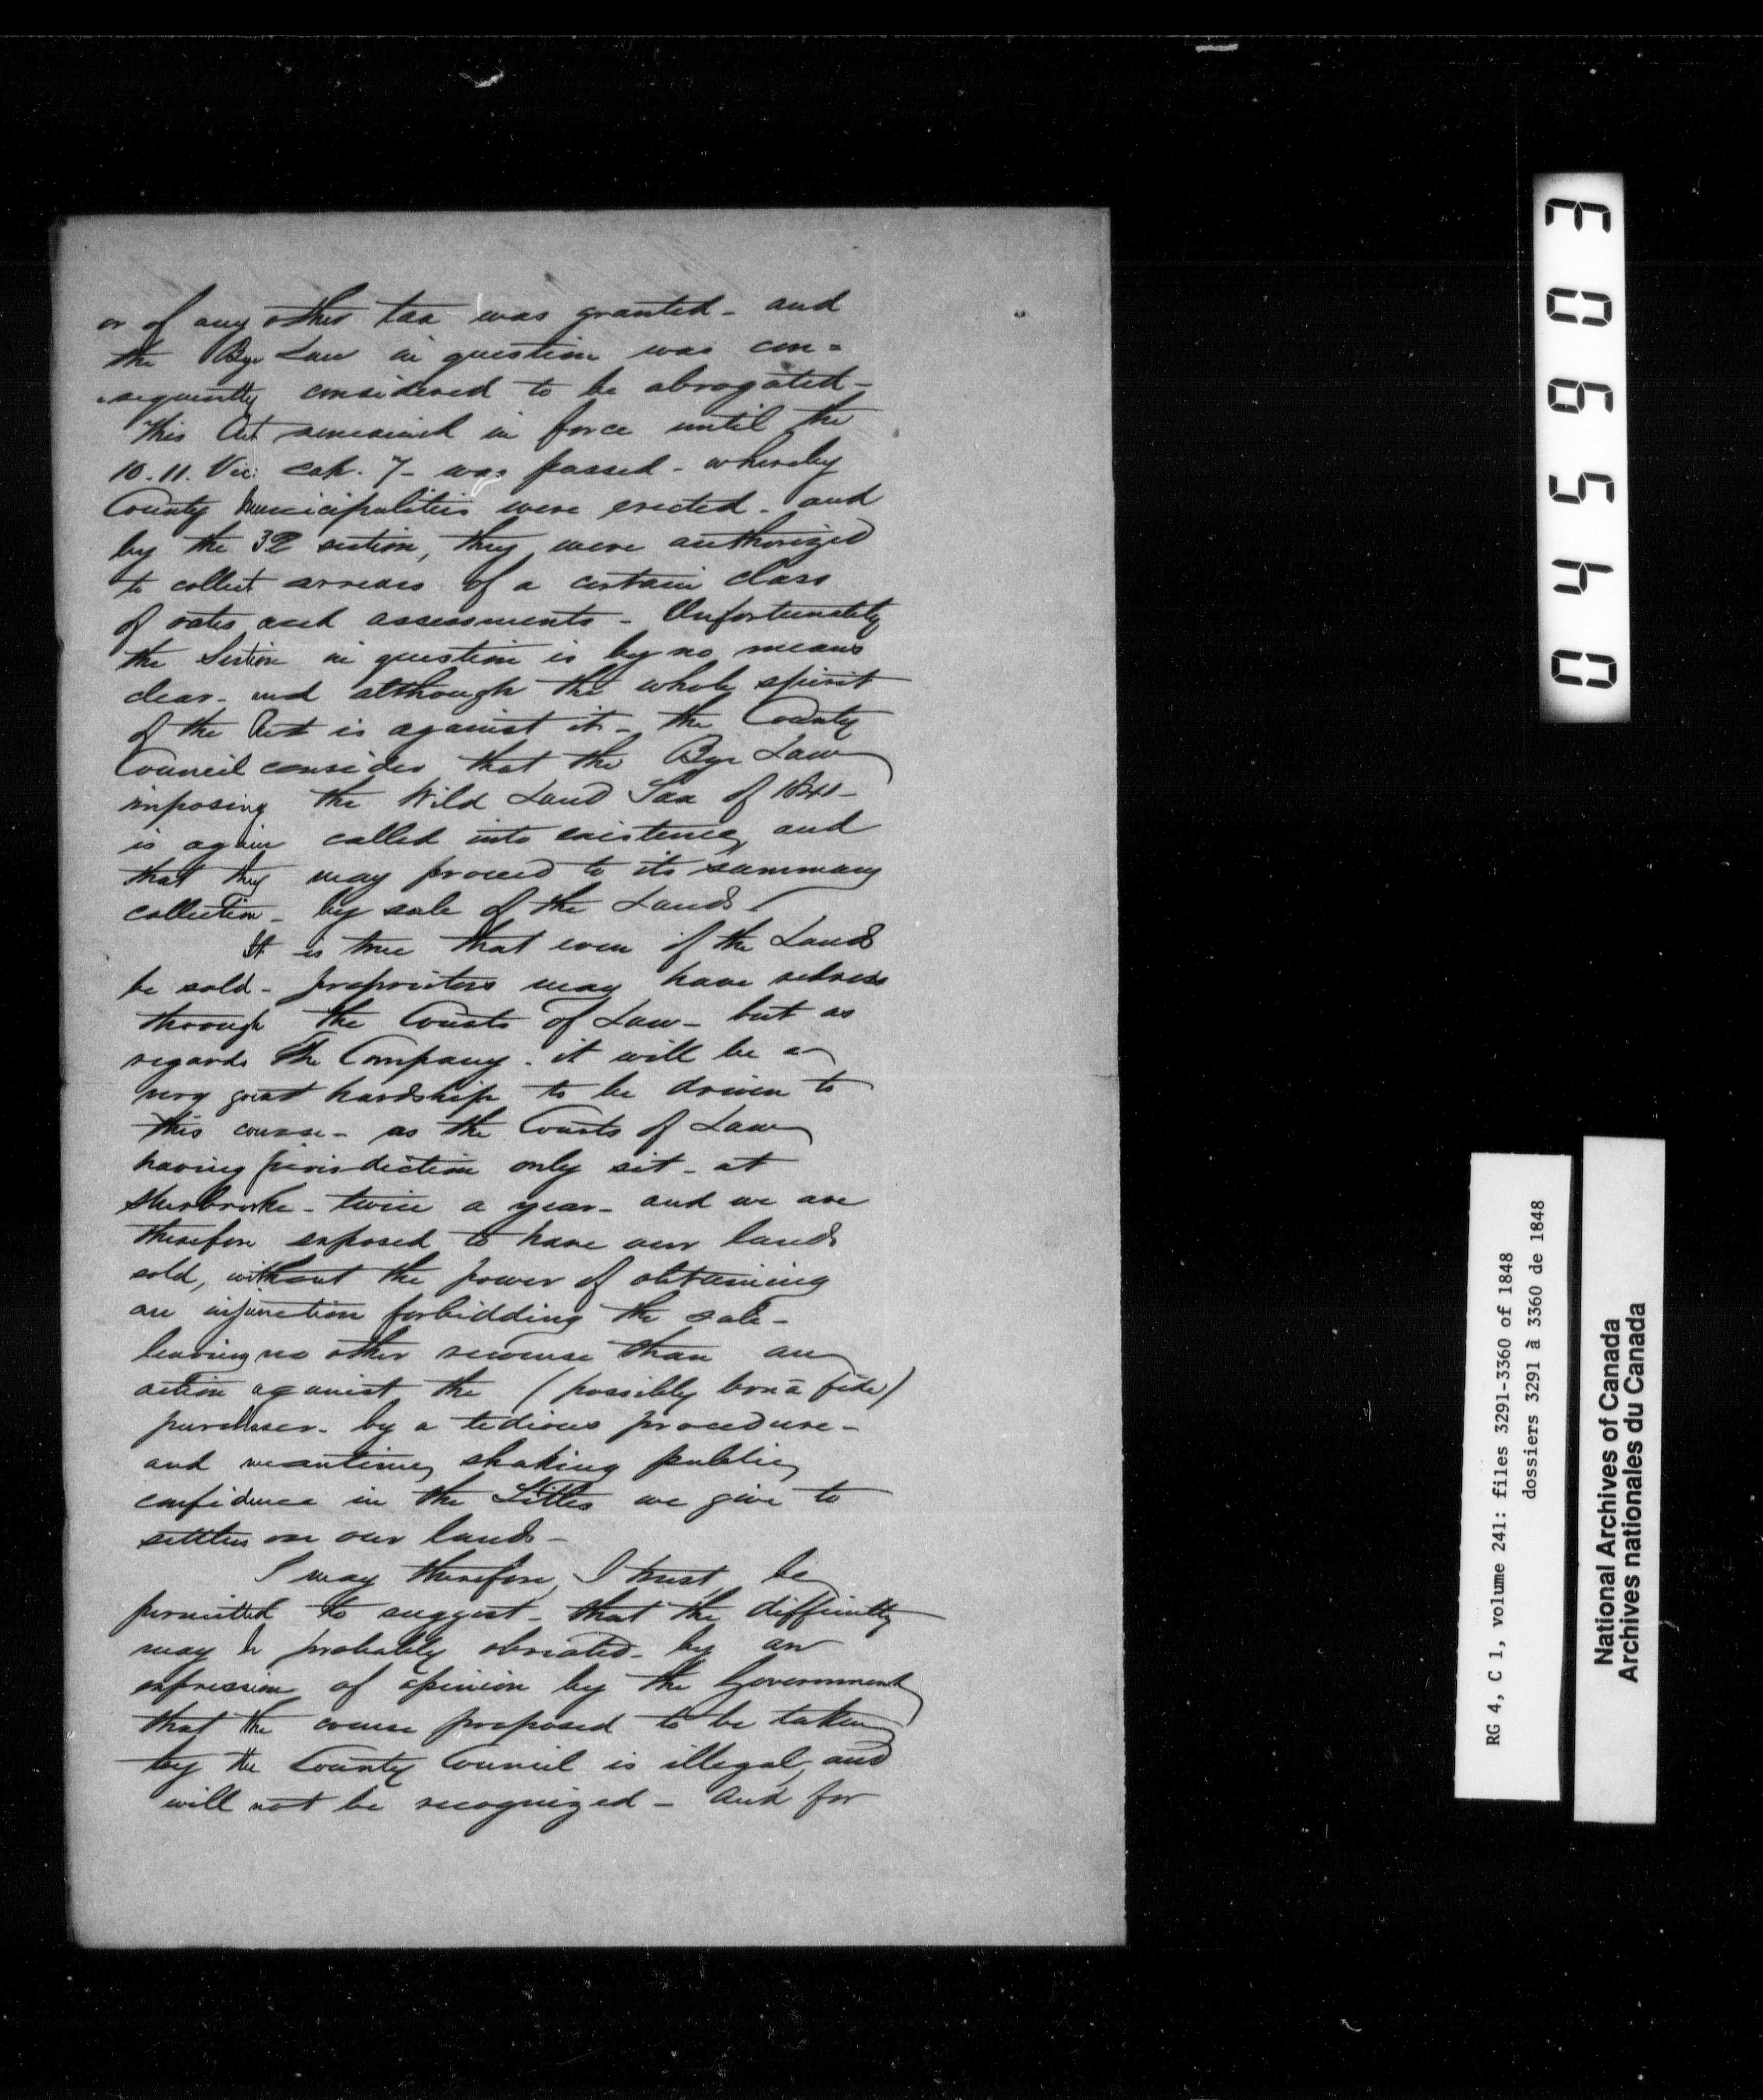 or of any other tax was granted - and
the Bye Law in question was con=
=sequently considered to be abrogated -
This Act remained in force until the
10. 11. Vic: cap. 7 - was passed - whereby
County Municipalities were erected - and
by the 32 section, they were authorized
to collect arrears of a certain class
of rates and assessments - Unfortunately
the Section in question is by no means
clear - and although the whole spirit
of the Act is against it - the County
Council consider that the Bye Law
imposing the Wild Land Tax of
is again called into existence, and
that they may proceed to its summary
collection - by sale of the Lands.
It is true that even if the Lands
be sold - proprietors may have redress
through the Courts of Law - but as
regards the Company - it will be a
very great hardship to be driven to
this course - as the Courts of Law
having jurisdiction only sit - at
Sherbrooke - twice a year - and we are
therefore exposed to have our lands
sold, without the power of obtaining
an injunction forbidding the sale -
leaving no other recourse than an
action against the (possibly bonâ fide)
purchaser - by a tedious procedure -
and meantime, shaking public
confidence in the Titles we give to
settlers on our lands -
I may therefore, I trust, be
permitted to suggest - that the difficulty
may be probably obviated - by an
expression of opinion by the Government
that the course proposed to be taken
by the County Council is illegal, and
will not be recognized - And for
045603
RG 4, C 1, volume 241: files 3291-3360 of 1848
dossiers 3291 à 3360 de 1848
National Archives of Canada
Archives nationales du Canada